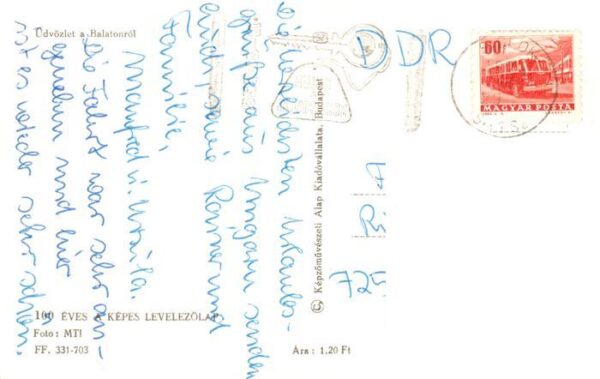 Üdvözlet a Balatonról
Die herzlichsten Urlaubs-
grüße aus Ungarn senden
Euch, sowie
Familie,
Manfred u.
Die Fahrt war sehr an-
genehm und hier
ist es wieder sehr schön.
DDR
725
R. A
60f
MAGYAR POSTA
© Képzőművészeti Alap Kiadóvállalata, Budapest
100 ÉVES A KÉPES LEVELEZŐLAP
Foto: MTI
FF. 331-703
Ára: 1,20 Ft